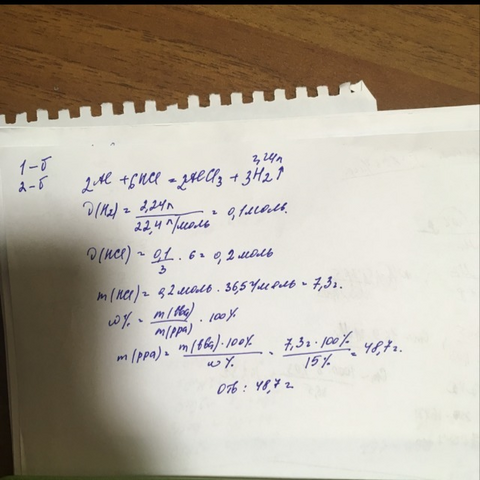 1-б
2-б
2,24л
2Al + 6HCl = 2AlCl3 + 3H2↑
ν(H2) = 2,24л / 22,4 л/моль = 0,1 моль.
ν(HCl) = 0,1 / 3 · 6 = 0,2 моль
m(HCl) = 0,2 моль · 36,5 г/моль = 7,3 г.
w% = m(вва) / m(рра) · 100%
m(рра) = m(вва) · 100% / w% = 7,3 г · 100% / 15% = 48,7 г.
Отв: 48,7 г